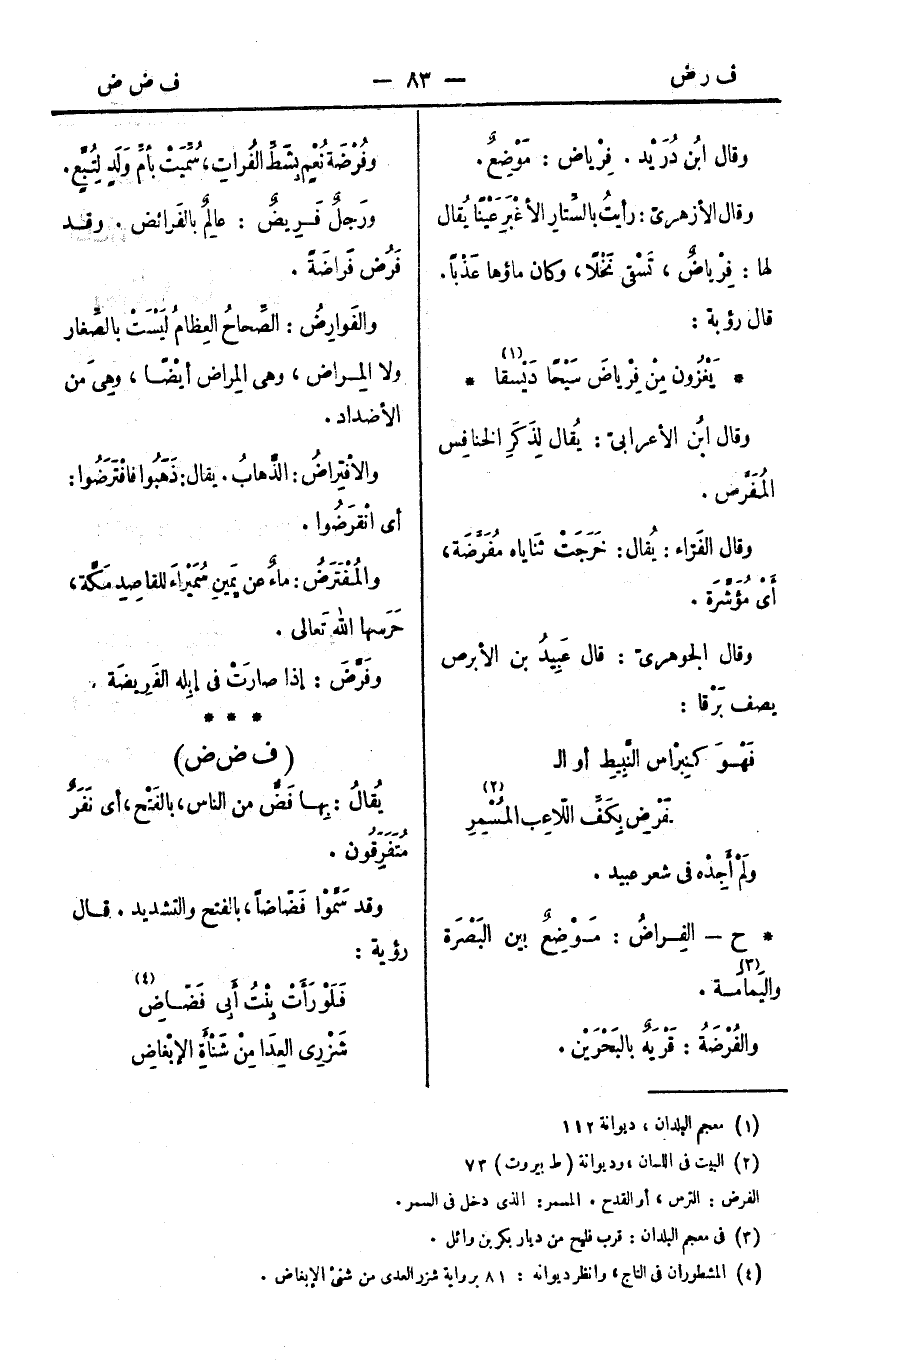 ف ر ض — ٨٣ — ف ض ض
وقال ابنُ دُرَيْد . فِرْياض : مَوْضِعٌ.
وقال الأزهرىّ : رأيتُ بالسِّتار الأغْبَرِ عَيْنًا يُقال
لها : فِرْياضٌ ، تَسْقِى نَخْلًا ، وكان ماؤها عَذْباً.
قال رؤبة :
* يَغْزُون مِنْ فِرْياضَ سَيْحًا دَيْسقا (١) *
وقال ابنُ الأعرابىّ : يُقال لِذَكَرِ الخنافِس
المُفَرَّض .
وقال الفَرّاء : يُقال : خَرَجَتْ ثَناياه مُفَرَّضَة ،
أَىْ مُؤَشَّرَة .
وقال الجوهرىّ : قال عَبِيدُ بن الأبرص
يصف بَرْقا :
فَهْـوَ كَـنِبْراس النَّبِيطِ أو الـ
ـفَرْض بِكَفِّ اللّاعِب المُسْمِرِ (٢)
ولَمْ أَجِدْه فى شعر عبيد .
* ح – الفِـراضُ : مَـوْضِعٌ بين البَصْرَة
واليَمامَـة (٣) .
والفُرْضَةُ : قَرْيَةٌ بالبَحْرَيْن .
وفُرْضَة نُعْمٍ بِشَطِّ الفُراتِ ، سُمِّيَتْ بأمِّ وَلَدٍ لِتُبَّعٍ.
ورَجلٌ فَـرِيضٌ : عالِمٌ بالفَرائض . وقـد
فَرُض فَراضَةً .
والفَوارِضُ : الصِّحاحُ العِظامُ لَيْسَتْ بالصِّغار
ولا المِـراض ، وهى المِراض أيْضًـا ، وهِىَ من
الأضداد .
والافْتِراضُ : الذَّهابُ . يقال : ذَهَبُوا فافْتَرَضُوا :
أى انْقرَضُوا .
والمُفْتَرَضُ : ماءٌ عن يَمِينِ سُمَيْراءَ للقاصِدِ مَكَّة ،
حَرَسها اللهُ تَعالى .
وفَرَّضَ : إذا صارَتْ فى إبِله الفَرِيضَة .
* * *
( ف ض ض )
يُقالُ : بِهـا فَضٌّ من الناس ، بالفَتْح ، أى نَفَرٌ
مُتَفَرِّقُون .
وقد سَمَّوْا فَضّاضاً ، بالفتح والتشديد . قـال
رؤبة :
فَـلَوْ رَأَتْ بِنْتُ أَبِى فَضّـاضِ (٤)
شَزْرِى العِدَا مِنْ شَنْأَةِ الإبْغاضِ
(١) معجم البلدان ، ديوانة ١١٢
(٢) البيت فى اللسان ، وديوانة ( ط بيروت ) ٧٣
الفرض : الترس ، أو القدح . المسمر : الذى دخل فى السمر .
(٣) فى معجم البلدان : قرب فليج من ديار بكر بن وائل .
(٤) المشطوران فى التاج ، وانظر ديوانه : ٨١ برواية شزر العدى من شنئ الإبغاض .